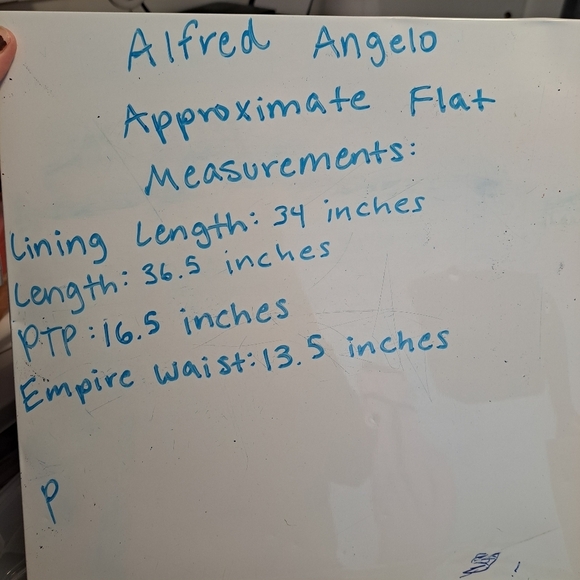 Alfred Angelo
Approximate Flat
Measurements:
Lining Length: 34 inches
Length: 36.5 inches
PTP: 16.5 inches
Empire Waist: 13.5 inches
P